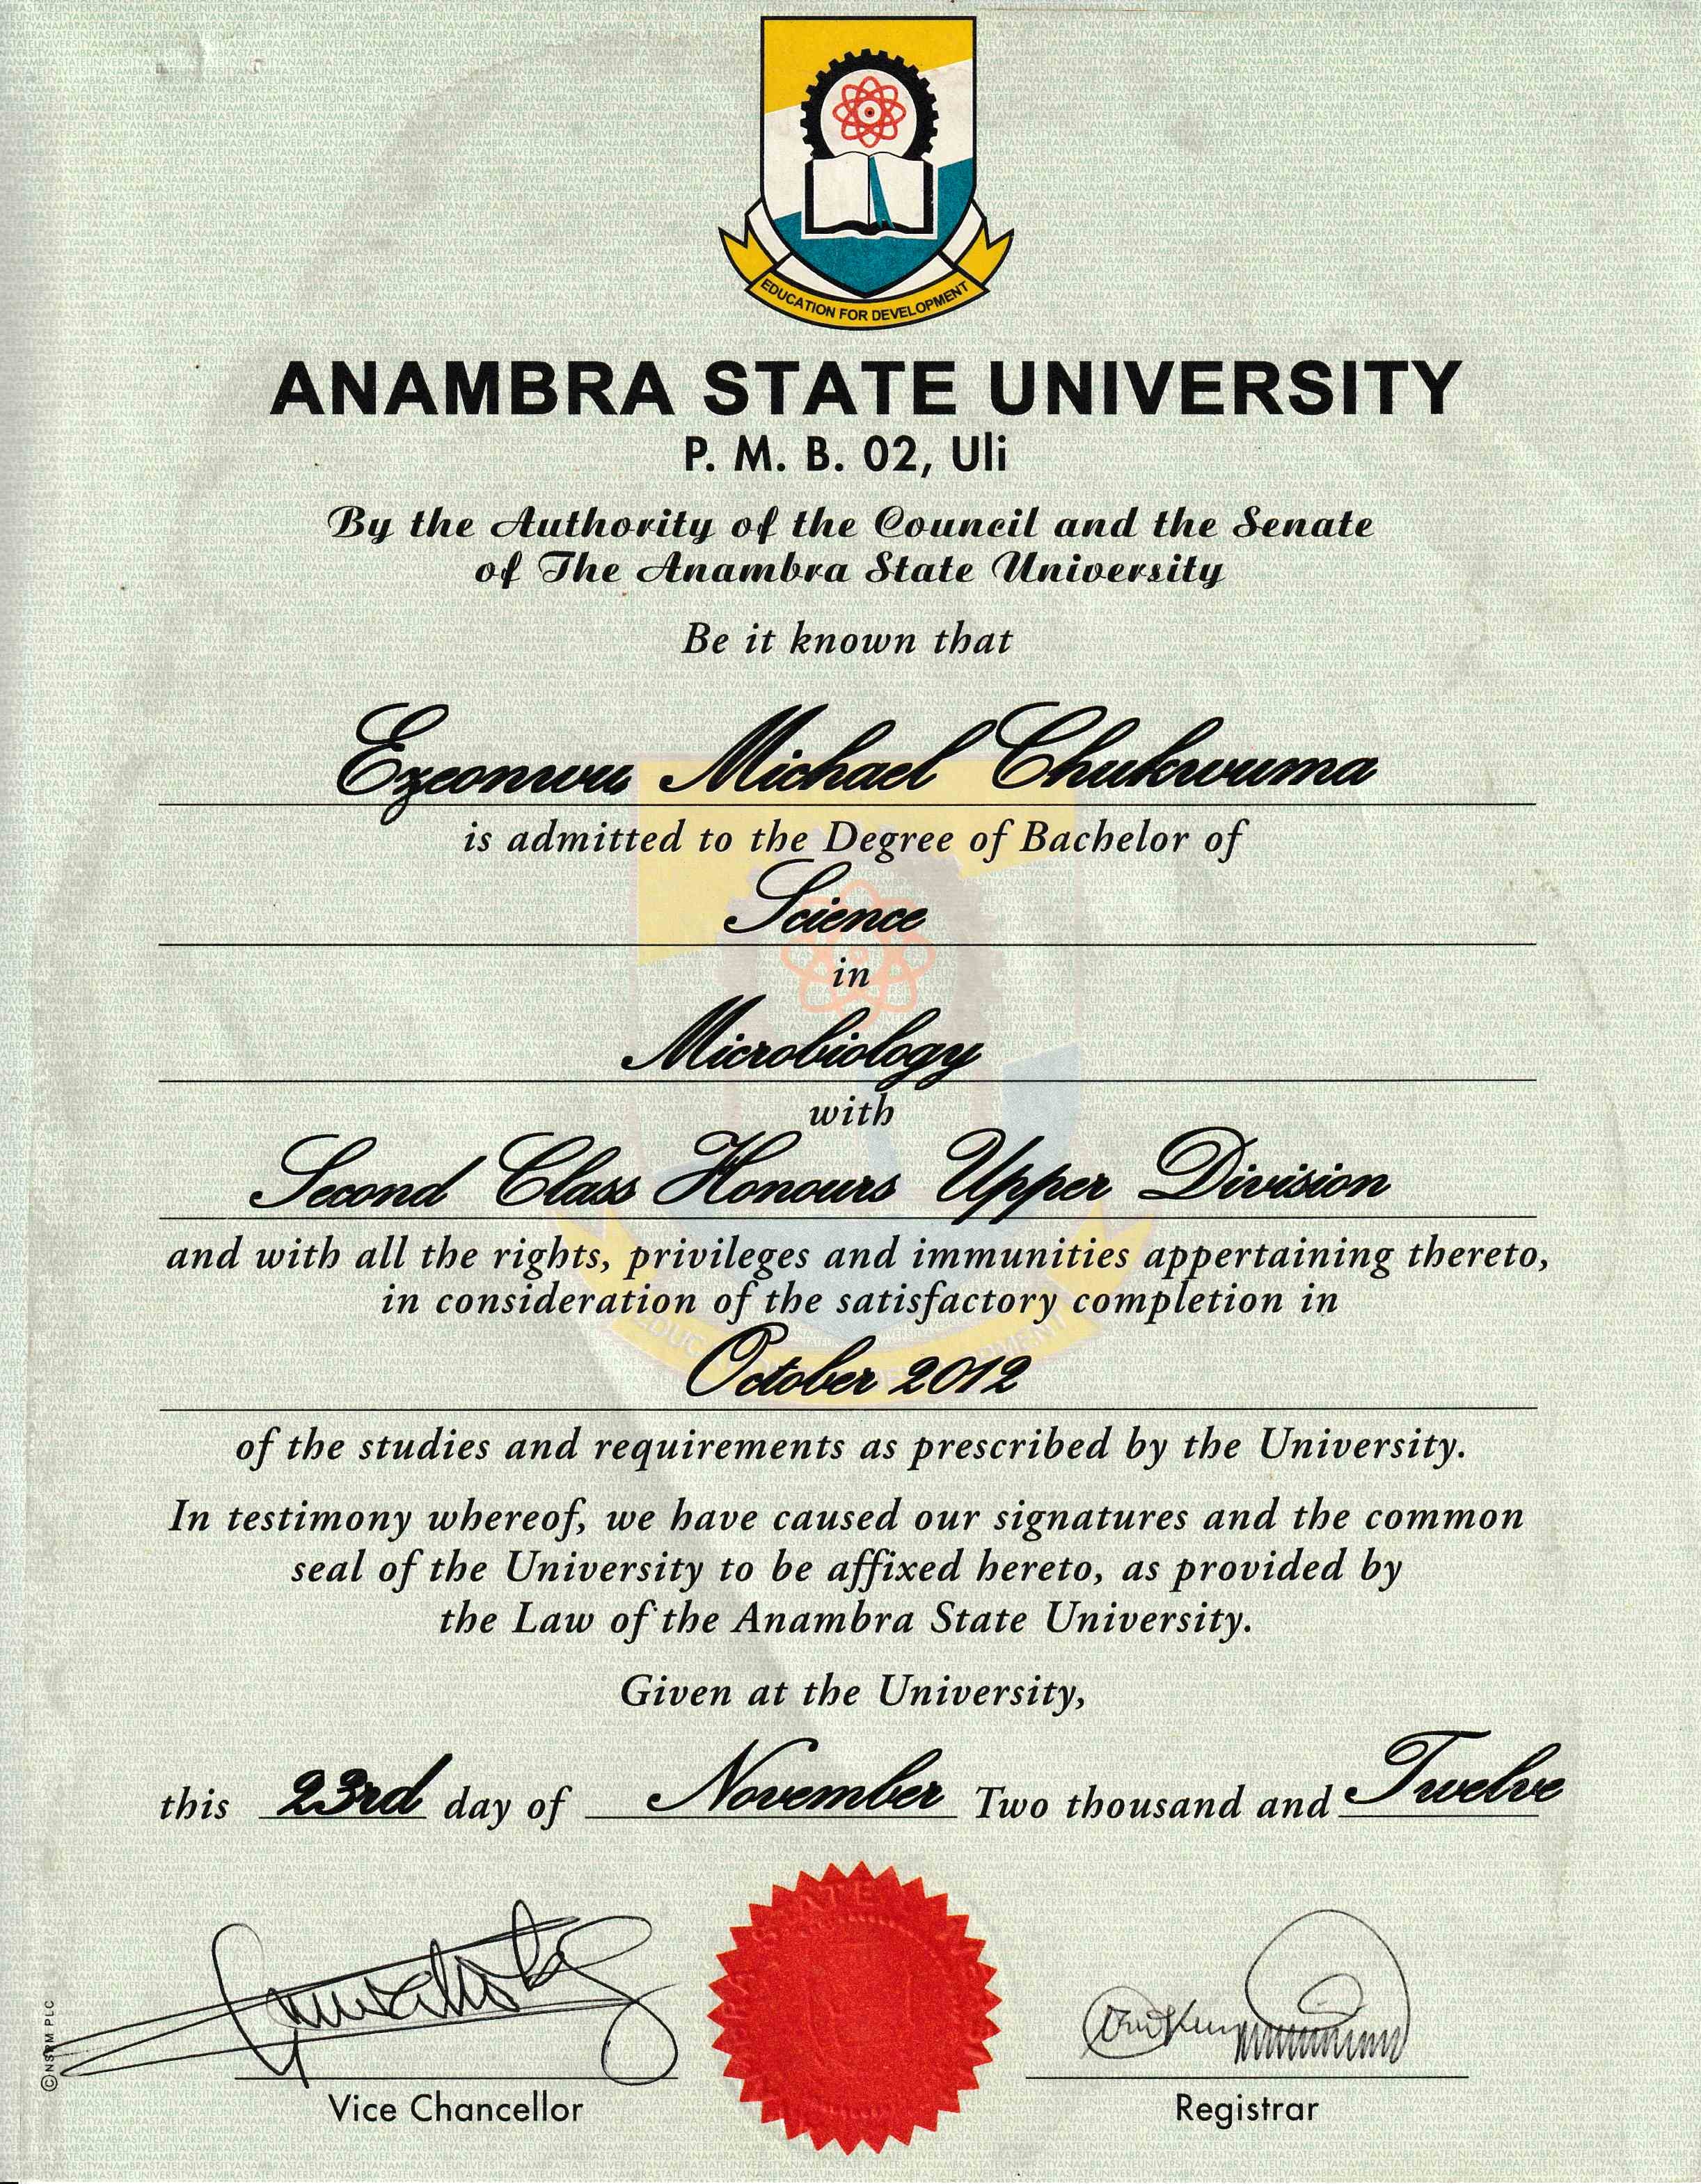 EDUCATION FOR DEVELOPMENT
ANAMBRA STATE UNIVERSITY
P. M. B. 02, Uli
By the Authority of the Council and the Senate
of The Anambra State University
Be it known that
Ezeonwu Michael Chukwuma
is admitted to the Degree of Bachelor of
Science
in
Microbiology
with
Second Class Honours Upper Division
and with all the rights, privileges and immunities appertaining thereto,
in consideration of the satisfactory completion in
October 2012
of the studies and requirements as prescribed by the University.
In testimony whereof, we have caused our signatures and the common
seal of the University to be affixed hereto, as provided by
the Law of the Anambra State University.
Given at the University,
this 23rd day of November Two thousand and Twelve
Vice Chancellor
Registrar
©NSPM PLC